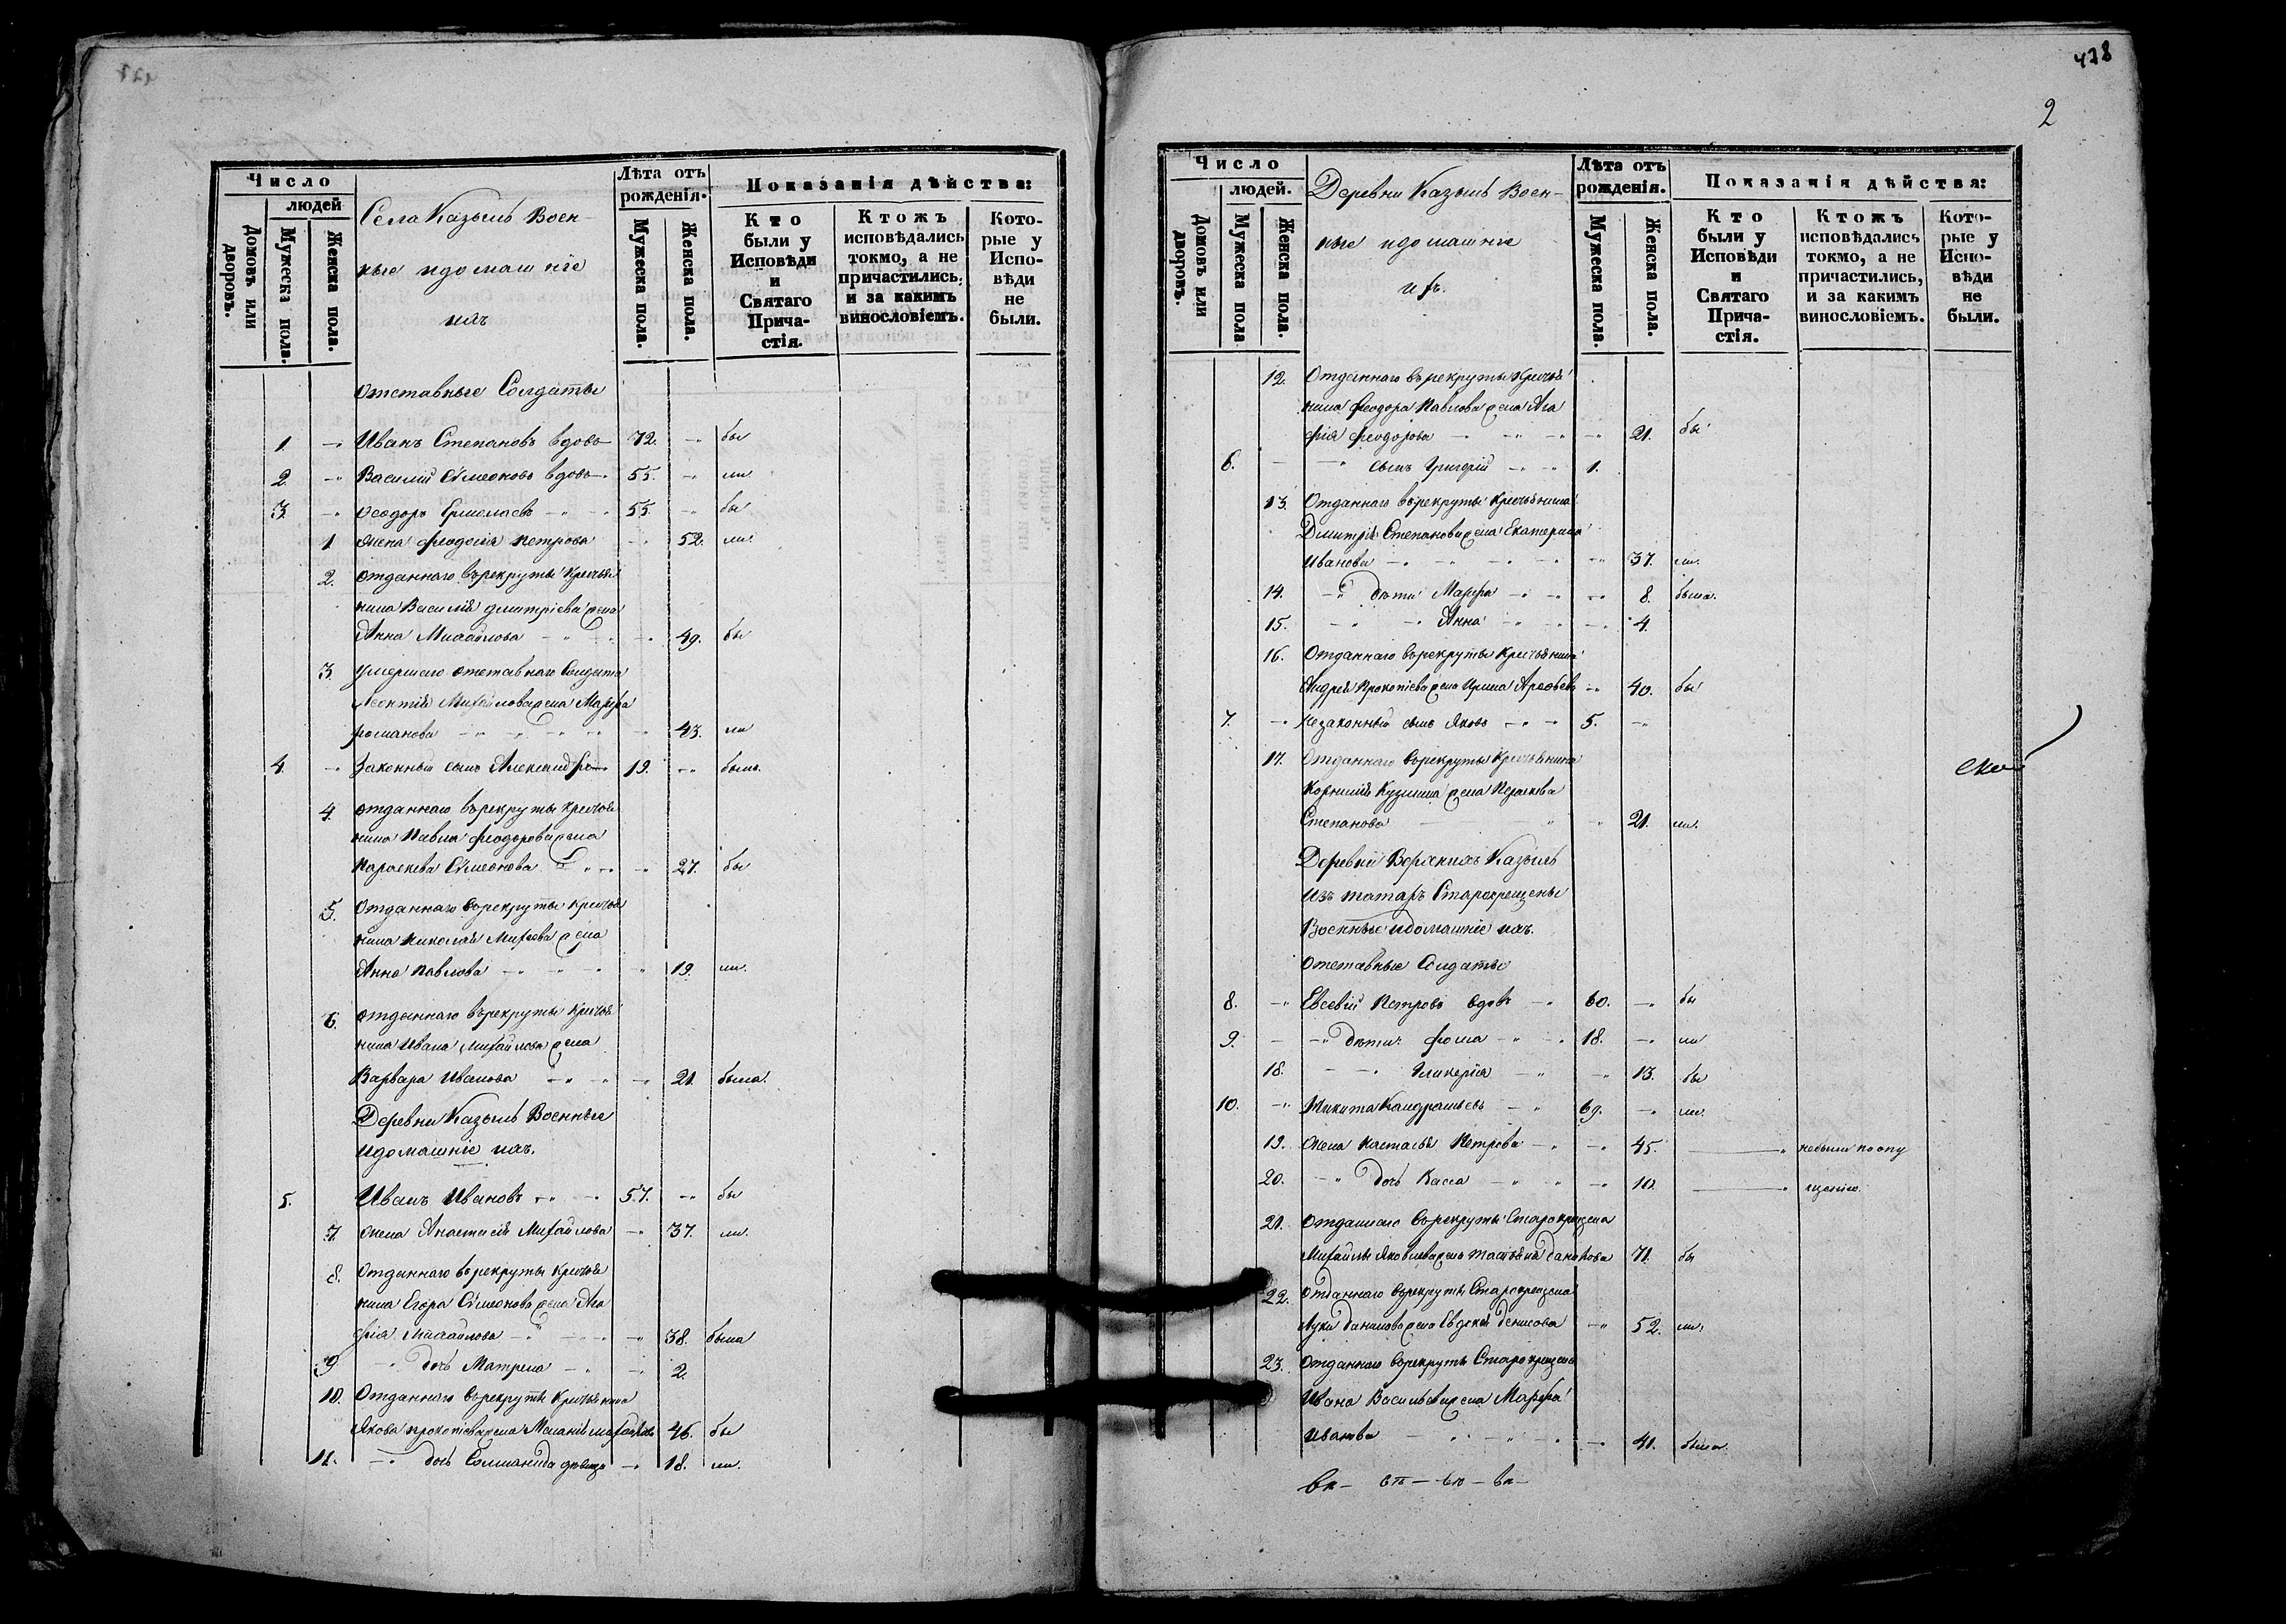 Число
людей
Домовъ или дворовъ.
Мужеска пола.
Женска пола.
Села Казыль Воен-
ные и домашніе
ихъ
Лѣта отъ рожденія.
Мужеска пола.
Женска пола.
Показанія дѣйства:
Кто были у Исповѣди и Святаго Причастія.
Ктожъ исповѣдались токмо, а не причастились, и за какимъ винословіемъ.
Которые у Исповѣди не были.
Отставные Солдаты
1. Иванъ Степановъ вдовъ 72. бы
2. Василий Симеоновъ вдовъ 55. ли.
3. Феодоръ Ермолаевъ 55. бы
1. Жена Феодосия Петрова 52. ли.
2. Отданнаго въ рекруты крестья
нина Василия Дмитріева жена
Анна Михайлова 49. бы
3. Умершаго отставнаго Солдата
Леонтия Михайлова жена Марфа
Романова 43. ли
4. Законный сынъ Александръ 19. былъ.
4. Отданнаго въ рекруты крестья
нина Павла Феодорова жена
Параскева Симеонова 27. бы
5. Отданнаго въ рекруты крестья
нина Николая Михеева жена
Анна Павлова 19. ли.
6. Отданнаго въ рекруты крестья
нина Ивана Михайлова жена
Варвара Иванова 21. была.
Деревни Казыль Военные
и домашніе ихъ.
5. Иванъ Ивановъ 57. бы
7. Жена Анастасія Михайлова 37. ли.
8. Отданнаго въ рекруты крестья
нина Егора Симеонова жена Ага
фія Михайлова 38. была
9. дочь Матрена 2.
10. Отданнаго въ рекруты крестьянина
Якова Прокопіева жена Меланія Михайлова 46. бы
11. дочь Соломанида девица 18. ли.
428
2
Число
людей.
Домовъ или дворовъ.
Мужеска пола
Женска пола.
Деревни Казыль Воен-
ные и домашніе
ихъ.
Лѣта отъ рожденія.
Мужеска пола.
Женска пола.
Показанія дѣйства:
Кто были у Исповѣди и Святаго Причастія.
Ктожъ исповѣдались токмо, а не причастились, и за какимъ винословіемъ.
Которые у Исповѣди не были.
12. Отданнаго въ рекруты крестья
нина Феодора Павлова жена Ага
фія Феодорова 21. бы
6. сынъ Григорій 1.
13. Отданнаго въ рекруты крестьянина
Дмитрія Степанова жена Екатерина
Иванова 37. ли.
14. дѣти Марфа 8. была.
15. Анна 4.
16. Отданнаго въ рекруты крестьянина
Андрея Прокопіева жена Ирина 40. бы
7. Незаконный сынъ Яковъ 5.
17. Отданнаго въ рекруты крестьянина
Корнилія Кузмина жена Параскева
Степанова 21. ли.
Деревни Верхнихъ Казыль
изъ татаръ Старокрещены
Военные и домашніе ихъ.
Отставные Солдаты
8. Евсевій Петровъ вдовъ 60. бы
9. дѣти Фома 18. ли
18. Гликерія 13. бы
10. Никита Кандратьевъ 69. ли.
19. Жена Настасья Петрова 45. небыли по опу
20. дочь Васса 10. щенію.
21. Отданнаго въ рекруты Старокрещена
Михайлы Яковлева жена Татьяна Данилова 71. бы
22. Отданнаго въ рекруты Старокрещена
Луки Данилова жена Евдокія Денисова 52. ли.
23. Отданнаго въ рекруты Старокрещена
Ивана Васильева жена Марфа
Иванова 41. была.